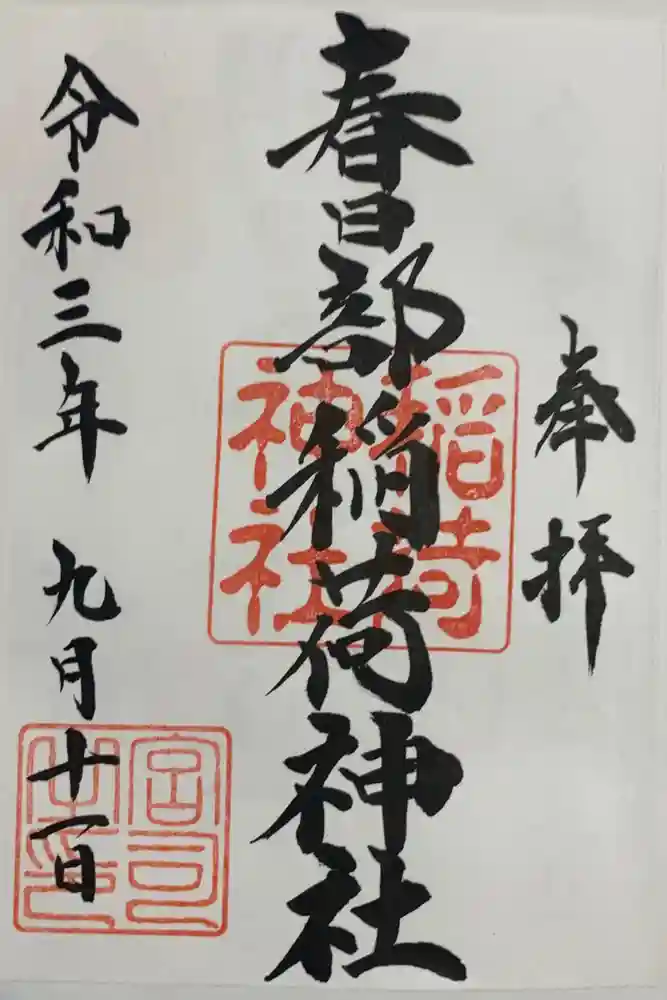 奉拝
春日部稲荷神社
稲荷
神社
令和三年 九月十一日
宮司
之印